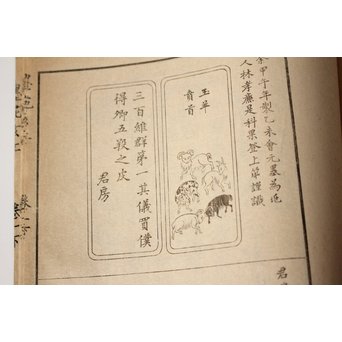 余甲午年製乙未會元墨為近
人林孝廉是科果登上第謹識
羊
賁首
三百維群第一其儀買僕
得卿五羖之皮
君房
君房